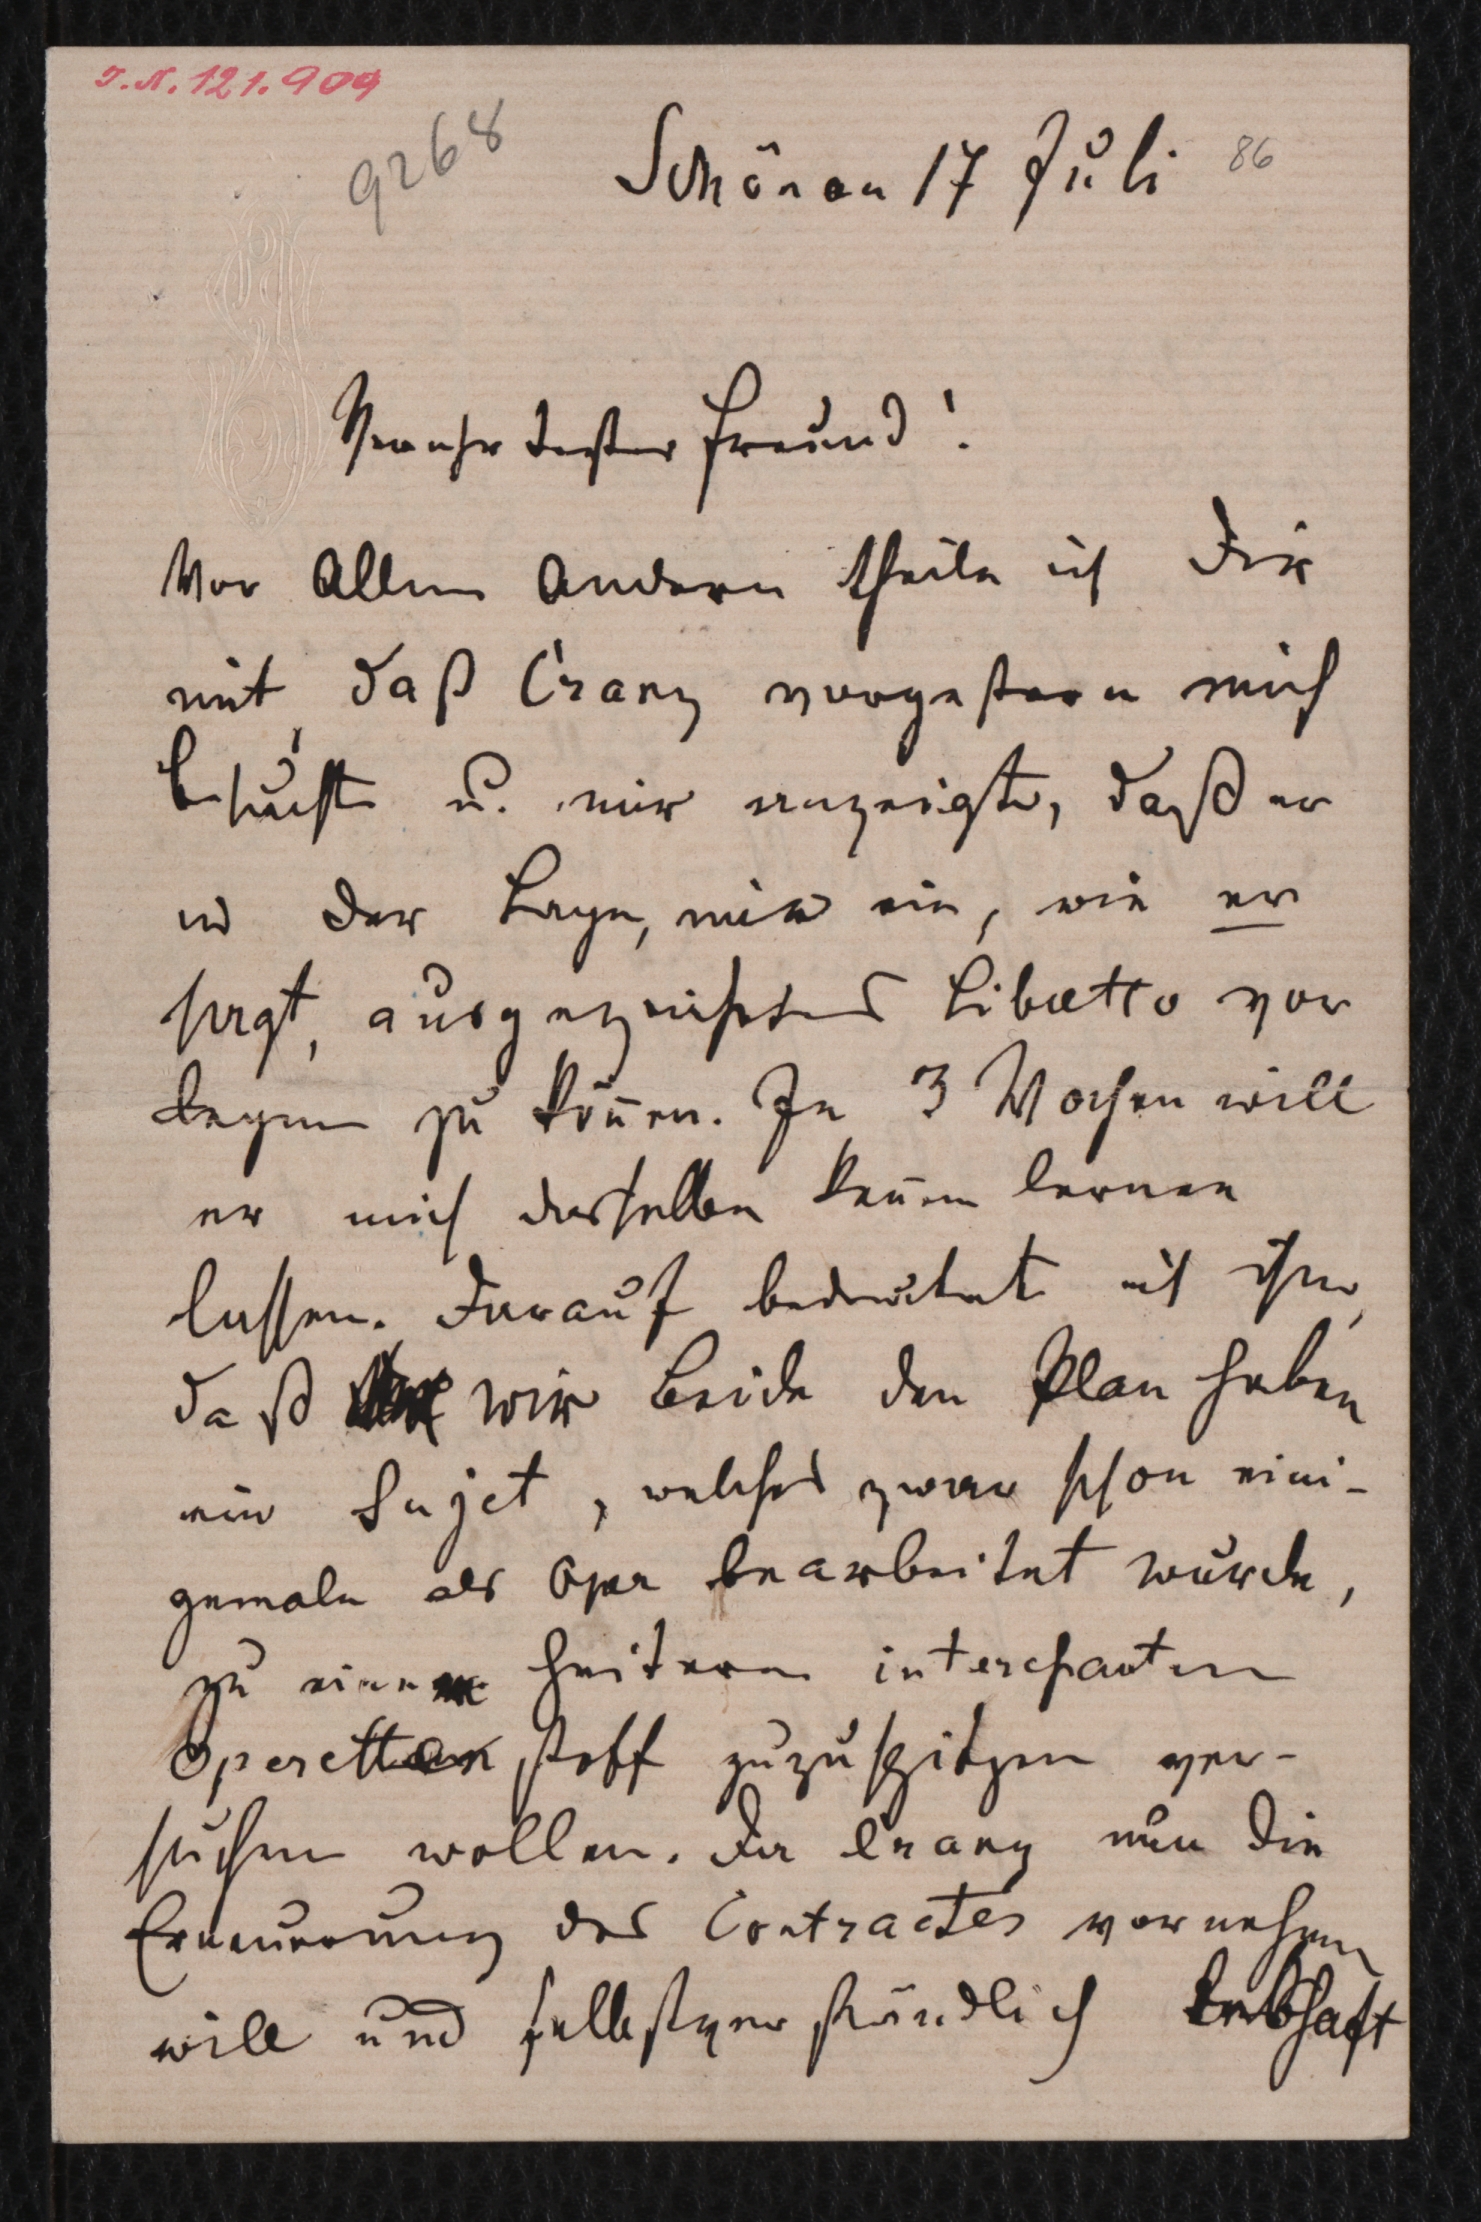 I.N. 121.909
9268
Schönau 17 Juli 86
Verehrtester Freund!
Vor Allem Andern theile ich Dir
mit, daß Cranz vorgestern mich
besuchte u. mir anzeigte, daß er
in der Lage, mir ein, wie er
sagt, ausgezeichnetes Libretto vor
legen zu können. In 3 Wochen will
er mich dasselbe kennen lernen
lassen. Darauf bedeutete ich ihm,
daß wir Beide den Plan haben
ein Sujet, welches zwar schon eini-
gemale als Oper bearbeitet wurde,
zu einem heitern interessanten
Operetten stoff zuzuspitzen ver-
suchen wollen. Da Cranz nun die
Erneuerung des Contractes vornehmen
will und selbstverständlich lebhaft